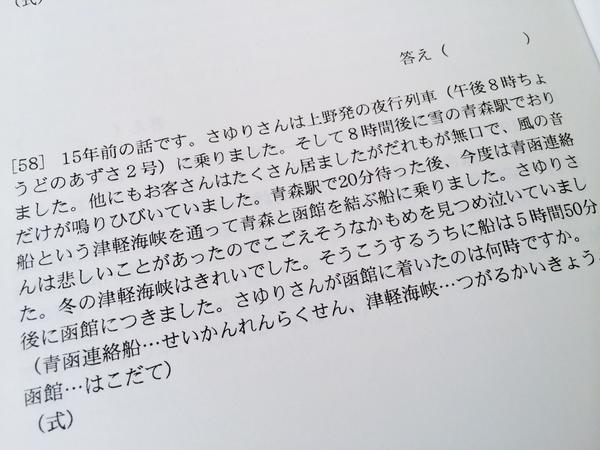 (式)
答え（　　　　　）
[58]　15年前の話です。さゆりさんは上野発の夜行列車（午後８時ちょ
うどのあずさ２号）に乗りました。そして８時間後に雪の青森駅でおり
ました。他にもお客さんはたくさん居ましたがだれもが無口で、風の音
だけが鳴りひびいていました。青森駅で20分待った後、今度は青函連絡
船という津軽海峡を通って青森と函館を結ぶ船に乗りました。さゆりさ
んは悲しいことがあったのでこごえそうなかもめを見つめ泣いていまし
た。冬の津軽海峡はきれいでした。そうこうするうちに船は５時間50分
後に函館につきました。さゆりさんが函館に着いたのは何時ですか。
（青函連絡船…せいかんれんらくせん、津軽海峡…つがるかいきょう、
函館…はこだて）
（式）